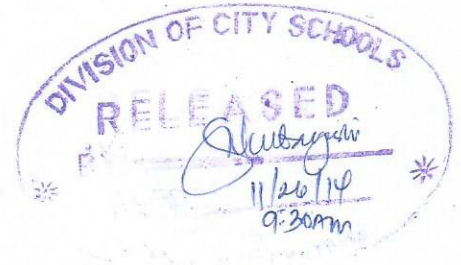 DIVISION OF CITY SCHOOLS
RELEASED
11/26/14
9:30AM